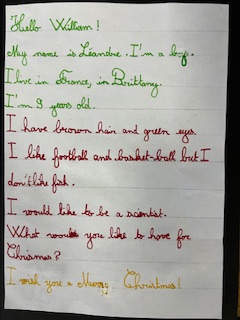 Hello William!
My name is Léandre. I'm a boy.
I live in France, in Brittany.
I'm 9 years old.
I have brown hair and green eyes.
I like football and basket-ball but I
don't like fish.
I would like to be a scientist.
What would you like to have for
Chrismas?
I wish you a Merry Christmas!